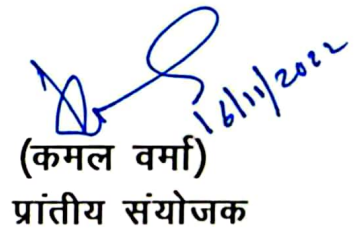 16/11/2022
(कमल वर्मा)
प्रांतीय संयोजक